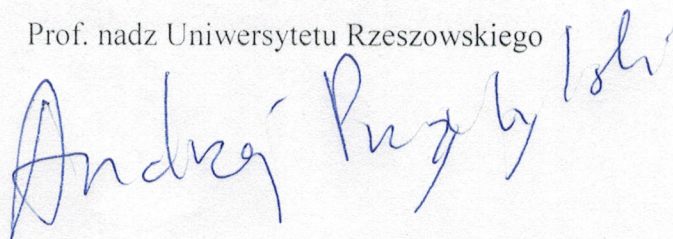 Prof. nadz Uniwersytetu Rzeszowskiego
Andrzej Przybylski